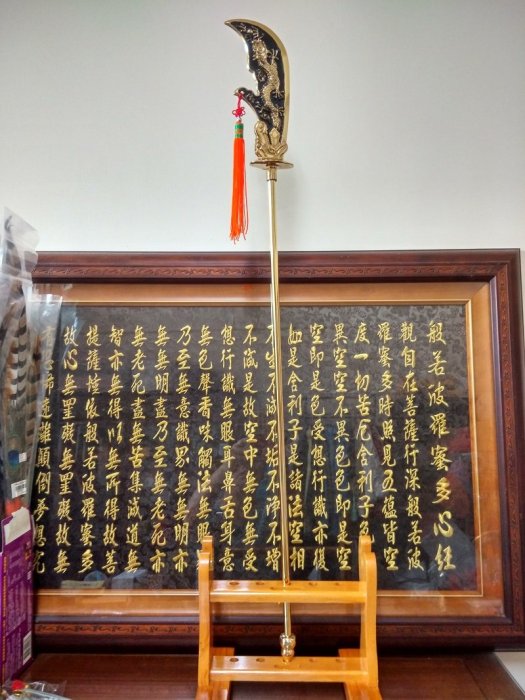 般若波羅蜜多心經
觀自在菩薩行深般若波
羅蜜多時照見五蘊皆空
度一切苦厄舍利子色
異空空不異色色即是空
空即是色受想行識亦復
如是舍利子是諸法空相
不生不滅不垢不淨不增
不減是故空中無色無受
想行識無眼耳鼻舌身意
無色聲香味觸法無眼
乃至無意識界無無明亦
無無明盡乃至無老死亦
無老死盡無苦集滅道無
智亦無得以無所得故菩
提薩埵依般若波羅蜜多
故心無罣礙無罣礙故無
恐怖遠離顛倒夢想究